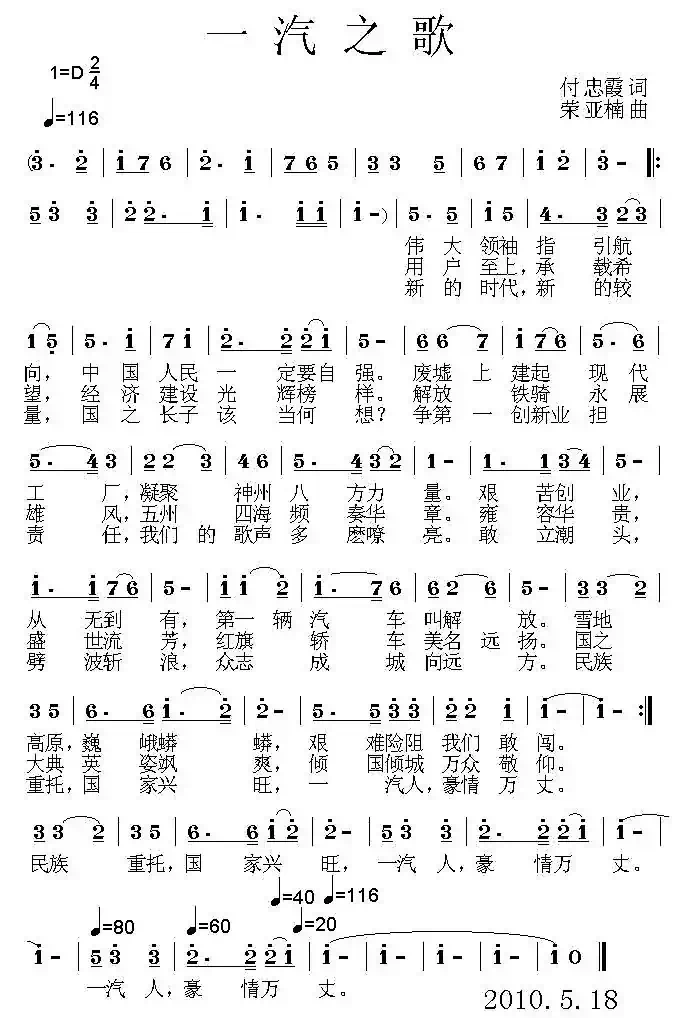 一汽之歌
1=D 2/4
付忠霞 词
♩=116
荣亚楠 曲
(3. 2 | 1 7 6 | 2. 1 | 7 6 5 | 3 3 5 | 6 7 | 1 2 | 3 - |:
5 3 3 | 2 2. 1 | 1. 1 1 | 1 -) | 5. 5 | 1 5 | 4. 3 2 3 |
伟大领袖指引航
用户至上,承载希
新的时代,新的较
1 5 | 5. 1 | 7 1 | 2. 2 2 1 | 5 - | 6 6 7 | 1 7 6 | 5. 6 |
向,中国人民一定要自强。废墟上建起现代
望,经济建设光辉榜样。解放铁骑永展
量,国之长子该当何想?争第一创新业担
5. 4 3 | 2 2 3 | 4 6 | 5. 4 3 2 | 1 - | 2. 1 3 4 | 5 - |
工厂,凝聚神州八方力量。艰苦创业,
雄风,五州四海频奏华章。雍容华贵,
责任,我们的歌声多麽嘹亮。敢立潮头,
1. 1 7 6 | 5 - | 1 1 2 | 1. 7 6 | 6 2 6 | 5 - | 3 3 2 |
从无到有,第一辆汽车叫解放。雪地
盛世流芳,红旗轿车美名远扬。国之
劈波斩浪,众志成城向远方。民族
3 5 | 6. 6 1. 2 | 2 - | 5. 5 3 3 | 2 2 1 | 1 - | 1 - :|
高原,巍峨蟒蟒,艰难险阻我们敢闯。
大典英姿飒爽,倾国倾城万众敬仰。
重托,国家兴旺,一汽人,豪情万丈。
3 3 2 | 3 5 | 6. 6 1 2 | 2 - | 5 3 3 | 2. 2 2 1 | 1 - |
民族重托,国家兴旺,一汽人,豪情万丈。
♩=40 ♩=116
♩=80 ♩=60 ♩=20
1 - | 5 3 3 | 2. 2 2 1 | 1 - | 1 - | 1 - | 1 0 ‖
一汽人,豪情万丈。
2010.5.18